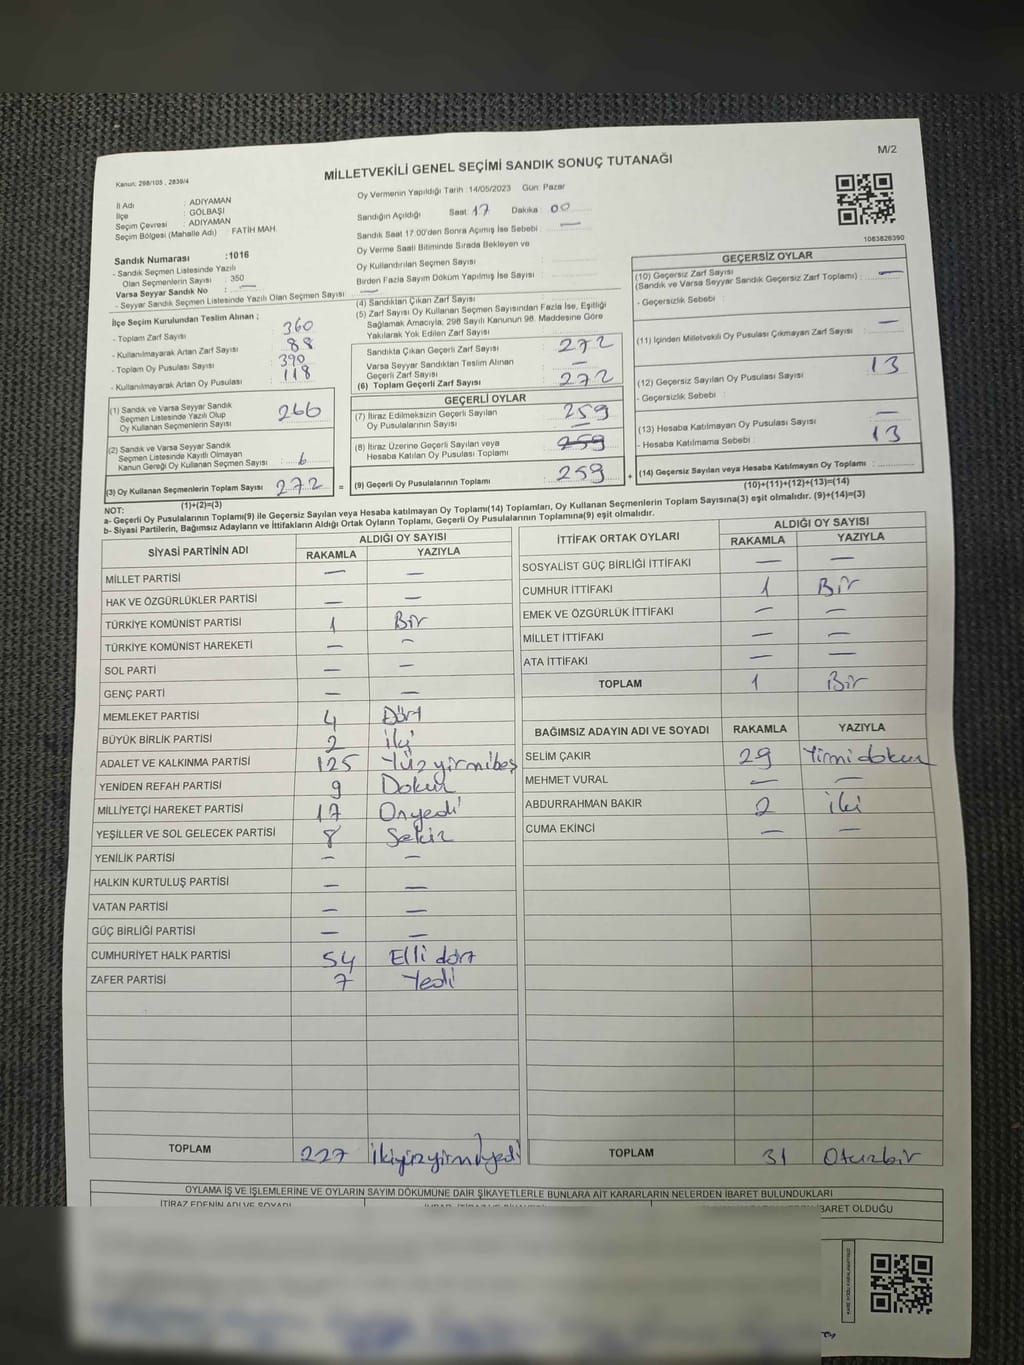 M/2
Kanun: 298/105 , 2839/4
MİLLETVEKİLİ GENEL SEÇİMİ SANDIK SONUÇ TUTANAĞI
İl Adı : ADIYAMAN
İlçe : GÖLBAŞI
Seçim Çevresi : ADIYAMAN
Seçim Bölgesi (Mahalle Adı) : FATİH MAH.
Sandık Numarası :1016
- Sandık Seçmen Listesinde Yazılı
Olan Seçmenlerin Sayısı : 350
Varsa Seyyar Sandık No : —
- Seyyar Sandık Seçmen Listesinde Yazılı Olan Seçmen Sayısı : —
İlçe Seçim Kurulundan Teslim Alınan ;
- Toplam Zarf Sayısı : 360
- Kullanılmayarak Artan Zarf Sayısı : 88
- Toplam Oy Pusulası Sayısı : 390
- Kullanılmayarak Artan Oy Pusulası : 118
(1) Sandık ve Varsa Seyyar Sandık
Seçmen Listesinde Yazılı Olup
Oy Kullanan Seçmenlerin Sayısı : 266
(2) Sandık ve Varsa Seyyar Sandık
Seçmen Listesinde Kayıtlı Olmayan
Kanun Gereği Oy Kullanan Seçmen Sayısı : 6
(3) Oy Kullanan Seçmenlerin Toplam Sayısı : 272 =
(1)+(2)=(3)
Oy Vermenin Yapıldığı Tarih :14/05/2023 Gün: Pazar
Sandığın Açıldığı Saat: 17 Dakika : 00
Sandık Saat 17.00'den Sonra Açılmış İse Sebebi : —
Oy Verme Saati Bitiminde Sırada Bekleyen ve
Oy Kullandırılan Seçmen Sayısı :
Birden Fazla Sayım Döküm Yapılmış İse Sayısı :
(4) Sandıktan Çıkan Zarf Sayısı :
(5) Zarf Sayısı Oy Kullanan Seçmen Sayısından Fazla İse, Eşitliği
Sağlamak Amacıyla, 298 Sayılı Kanunun 98. Maddesine Göre
Yakılarak Yok Edilen Zarf Sayısı :
Sandıkta Çıkan Geçerli Zarf Sayısı : 272
Varsa Seyyar Sandıktan Teslim Alınan
Geçerli Zarf Sayısı : —
(6) Toplam Geçerli Zarf Sayısı : 272
GEÇERLİ OYLAR
(7) İtiraz Edilmeksizin Geçerli Sayılan
Oy Pusulasının Sayısı : 259
(8) İtiraz Üzerine Geçerli Sayılan veya
Hesaba Katılan Oy Pusulası Toplamı : — 259
(9) Geçerli Oy Pusulalarının Toplamı : 259 +
1063826390
GEÇERSİZ OYLAR
(10) Geçersiz Zarf Sayısı
(Sandık ve Varsa Seyyar Sandık Geçersiz Zarf Toplamı) : —
- Geçersizlik Sebebi :
(11) İçinden Milletvekili Oy Pusulası Çıkmayan Zarf Sayısı : —
(12) Geçersiz Sayılan Oy Pusulası Sayısı : 13
- Geçersizlik Sebebi :
(13) Hesaba Katılmayan Oy Pusulası Sayısı : —
- Hesaba Katılmama Sebebi : 13
(14) Geçersiz Sayılan veya Hesaba Katılmayan Oy Toplamı :
(10)+(11)+(12)+(13)=(14)
NOT:
a- Geçerli Oy Pusulalarının Toplamı(9) ile Geçersiz Sayılan veya Hesaba katılmayan Oy Toplamı(14) Toplamları, Oy Kullanan Seçmenlerin Toplam Sayısına(3) eşit olmalıdır. (9)+(14)=(3)
b- Siyasi Partilerin, Bağımsız Adayların ve İttifakların Aldığı Ortak Oyların Toplamı, Geçerli Oy Pusulalarının Toplamına(9) eşit olmalıdır.
SİYASİ PARTİNİN ADI ALDIĞI OY SAYISI
RAKAMLA YAZIYLA
MİLLET PARTİSİ — —
HAK VE ÖZGÜRLÜKLER PARTİSİ — —
TÜRKİYE KOMÜNİST PARTİSİ 1 Bir
TÜRKİYE KOMÜNİST HAREKETİ — —
SOL PARTİ — —
GENÇ PARTİ — —
MEMLEKET PARTİSİ 4 Dört
BÜYÜK BİRLİK PARTİSİ 2 İki
ADALET VE KALKINMA PARTİSİ 125 Yüzyirmibeş
YENİDEN REFAH PARTİSİ 9 Dokuz
MİLLİYETÇİ HAREKET PARTİSİ 17 Onyedi
YEŞİLLER VE SOL GELECEK PARTİSİ 8 Sekiz
YENİLİK PARTİSİ — —
HALKIN KURTULUŞ PARTİSİ — —
VATAN PARTİSİ — —
GÜÇ BİRLİĞİ PARTİSİ — —
CUMHURİYET HALK PARTİSİ 54 Elli dört
ZAFER PARTİSİ 7 Yedi
TOPLAM 227 İkiyüzyirmiyedi
İTTİFAK ORTAK OYLARI ALDIĞI OY SAYISI
RAKAMLA YAZIYLA
SOSYALİST GÜÇ BİRLİĞİ İTTİFAKI — —
CUMHUR İTTİFAKI 1 Bir
EMEK VE ÖZGÜRLÜK İTTİFAKI — —
MİLLET İTTİFAKI — —
ATA İTTİFAKI — —
TOPLAM 1 Bir
BAĞIMSIZ ADAYIN ADI VE SOYADI RAKAMLA YAZIYLA
SELİM ÇAKIR 29 Yirmidokuz
MEHMET VURAL — —
ABDURRAHMAN BAKIR 2 iki
CUMA EKİNCİ — —
TOPLAM 31 Oturbir
OYLAMA İŞ VE İŞLEMLERİNE VE OYLARIN SAYIM DÖKÜMÜNE DAİR ŞİKAYETLERLE BUNLARA AİT KARARLARIN NELERDEN İBARET BULUNDUKLARI
İTİRAZ EDENİN ADI VE SOYADI
İBARET OLDUĞU